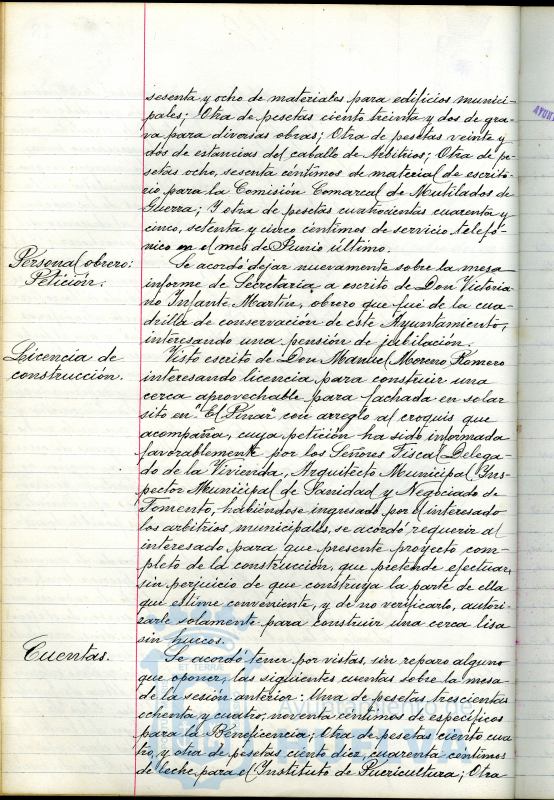 sesenta y ocho de materiales para edificios munici-
pales; Otra de pesetas ciento treinta y dos de gra-
va para diversas obras; Otra de pesetas veinte y
dos de estancias del caballo de Arbitrios; Otra de pe-
setas ocho, sesenta céntimos de material de escrito-
rio para la Comisión Comarcal de Mutilados de
Guerra; Y otra de pesetas cuatrocientas cuarenta y
cinco, setenta y cinco céntimos de servicio telefó-
nico en el mes de Junio último.
Personal obrero: Petición.
Se acordó dejar nuevamente sobre la mesa
informe de Secretaria a escrito de Don Victoria-
no Infante Martín, obrero que fué de la cua-
drilla de conservación de este Ayuntamiento,
interesando una pensión de jubilación.
Licencia de construcción.
Visto escrito de Don Manuel Moreno Romero
interesando licencia para construir una
cerca aprovechable para fachada en solar
sito en "El Pinar" con arreglo al croquis que
acompaña, cuya petición ha sido informada
favorablemente por los Señores Fiscal Delega-
do de la Vivienda, Arquitecto Municipal, Ins-
pector Municipal de Sanidad y Negociado de
Fomento, habiéndose ingresado por el interesado
los arbitrios municipales, se acordó requerir al
interesado para que presente proyecto com-
pleto de la construcción, que pretende efectuar,
sin perjuicio de que construya la parte de ella
que estime conveniente, y de no verificarlo, autori-
zarle solamente para construir una cerca lisa
sin huecos.
Cuentas.
Se acordó tener por vistas, sin reparo alguno
que oponer, las siguientes cuentas sobre la mesa
de la sesión anterior: Una de pesetas trescientas
ochenta y cuatro, noventa céntimos de específicos
para la Beneficencia; Otra de pesetas ciento cua-
tro, y otra de pesetas ciento diez, cuarenta céntimos
de leche para el Instituto de Puericultura; Otra
ET TERRA
Ayuntamiento de